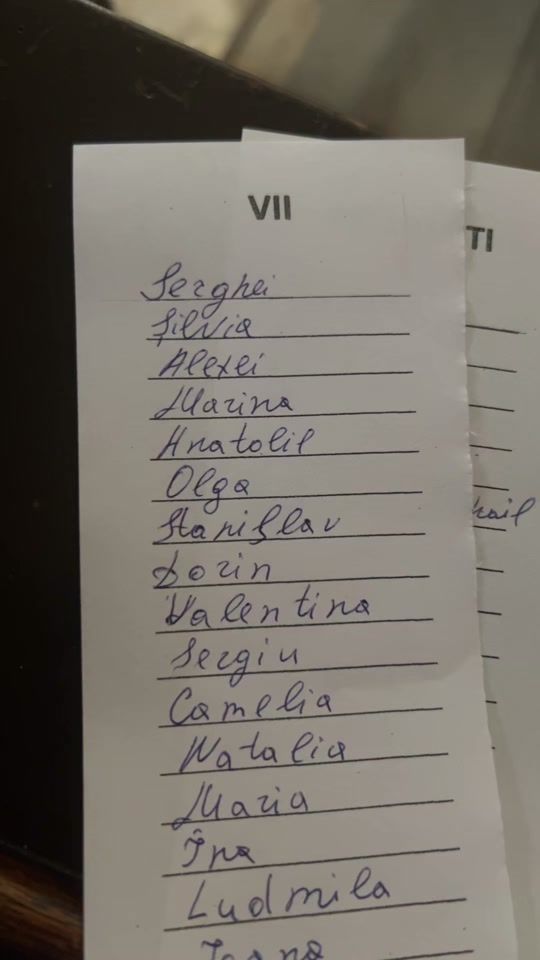 VII
TI
Serghei
Silvia
Alexei
Marina
Anatolii
Olga
Stanislav
hail
Dorin
Valentina
Sergiu
Camelia
Natalia
Maria
Ina
Ludmila